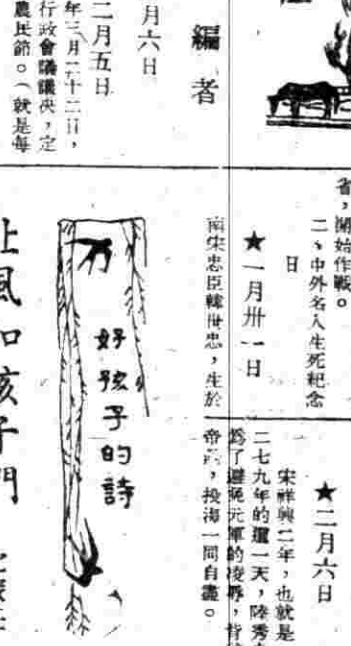 編者
月六日
二月五日
年三月二十二日，
行政會議議決，定
農民節。（就是每
省，開始作戰。
二、中外名人生死紀念
日
★一月卅一日
南宋忠臣韓世忠，生於
★二月六日
宋祥興二年，也就是
二七九年的這一天，陸秀
爲了避免元軍的凌辱，背
帝，投海一同自盡。
好孩子的詩
風和孩子們